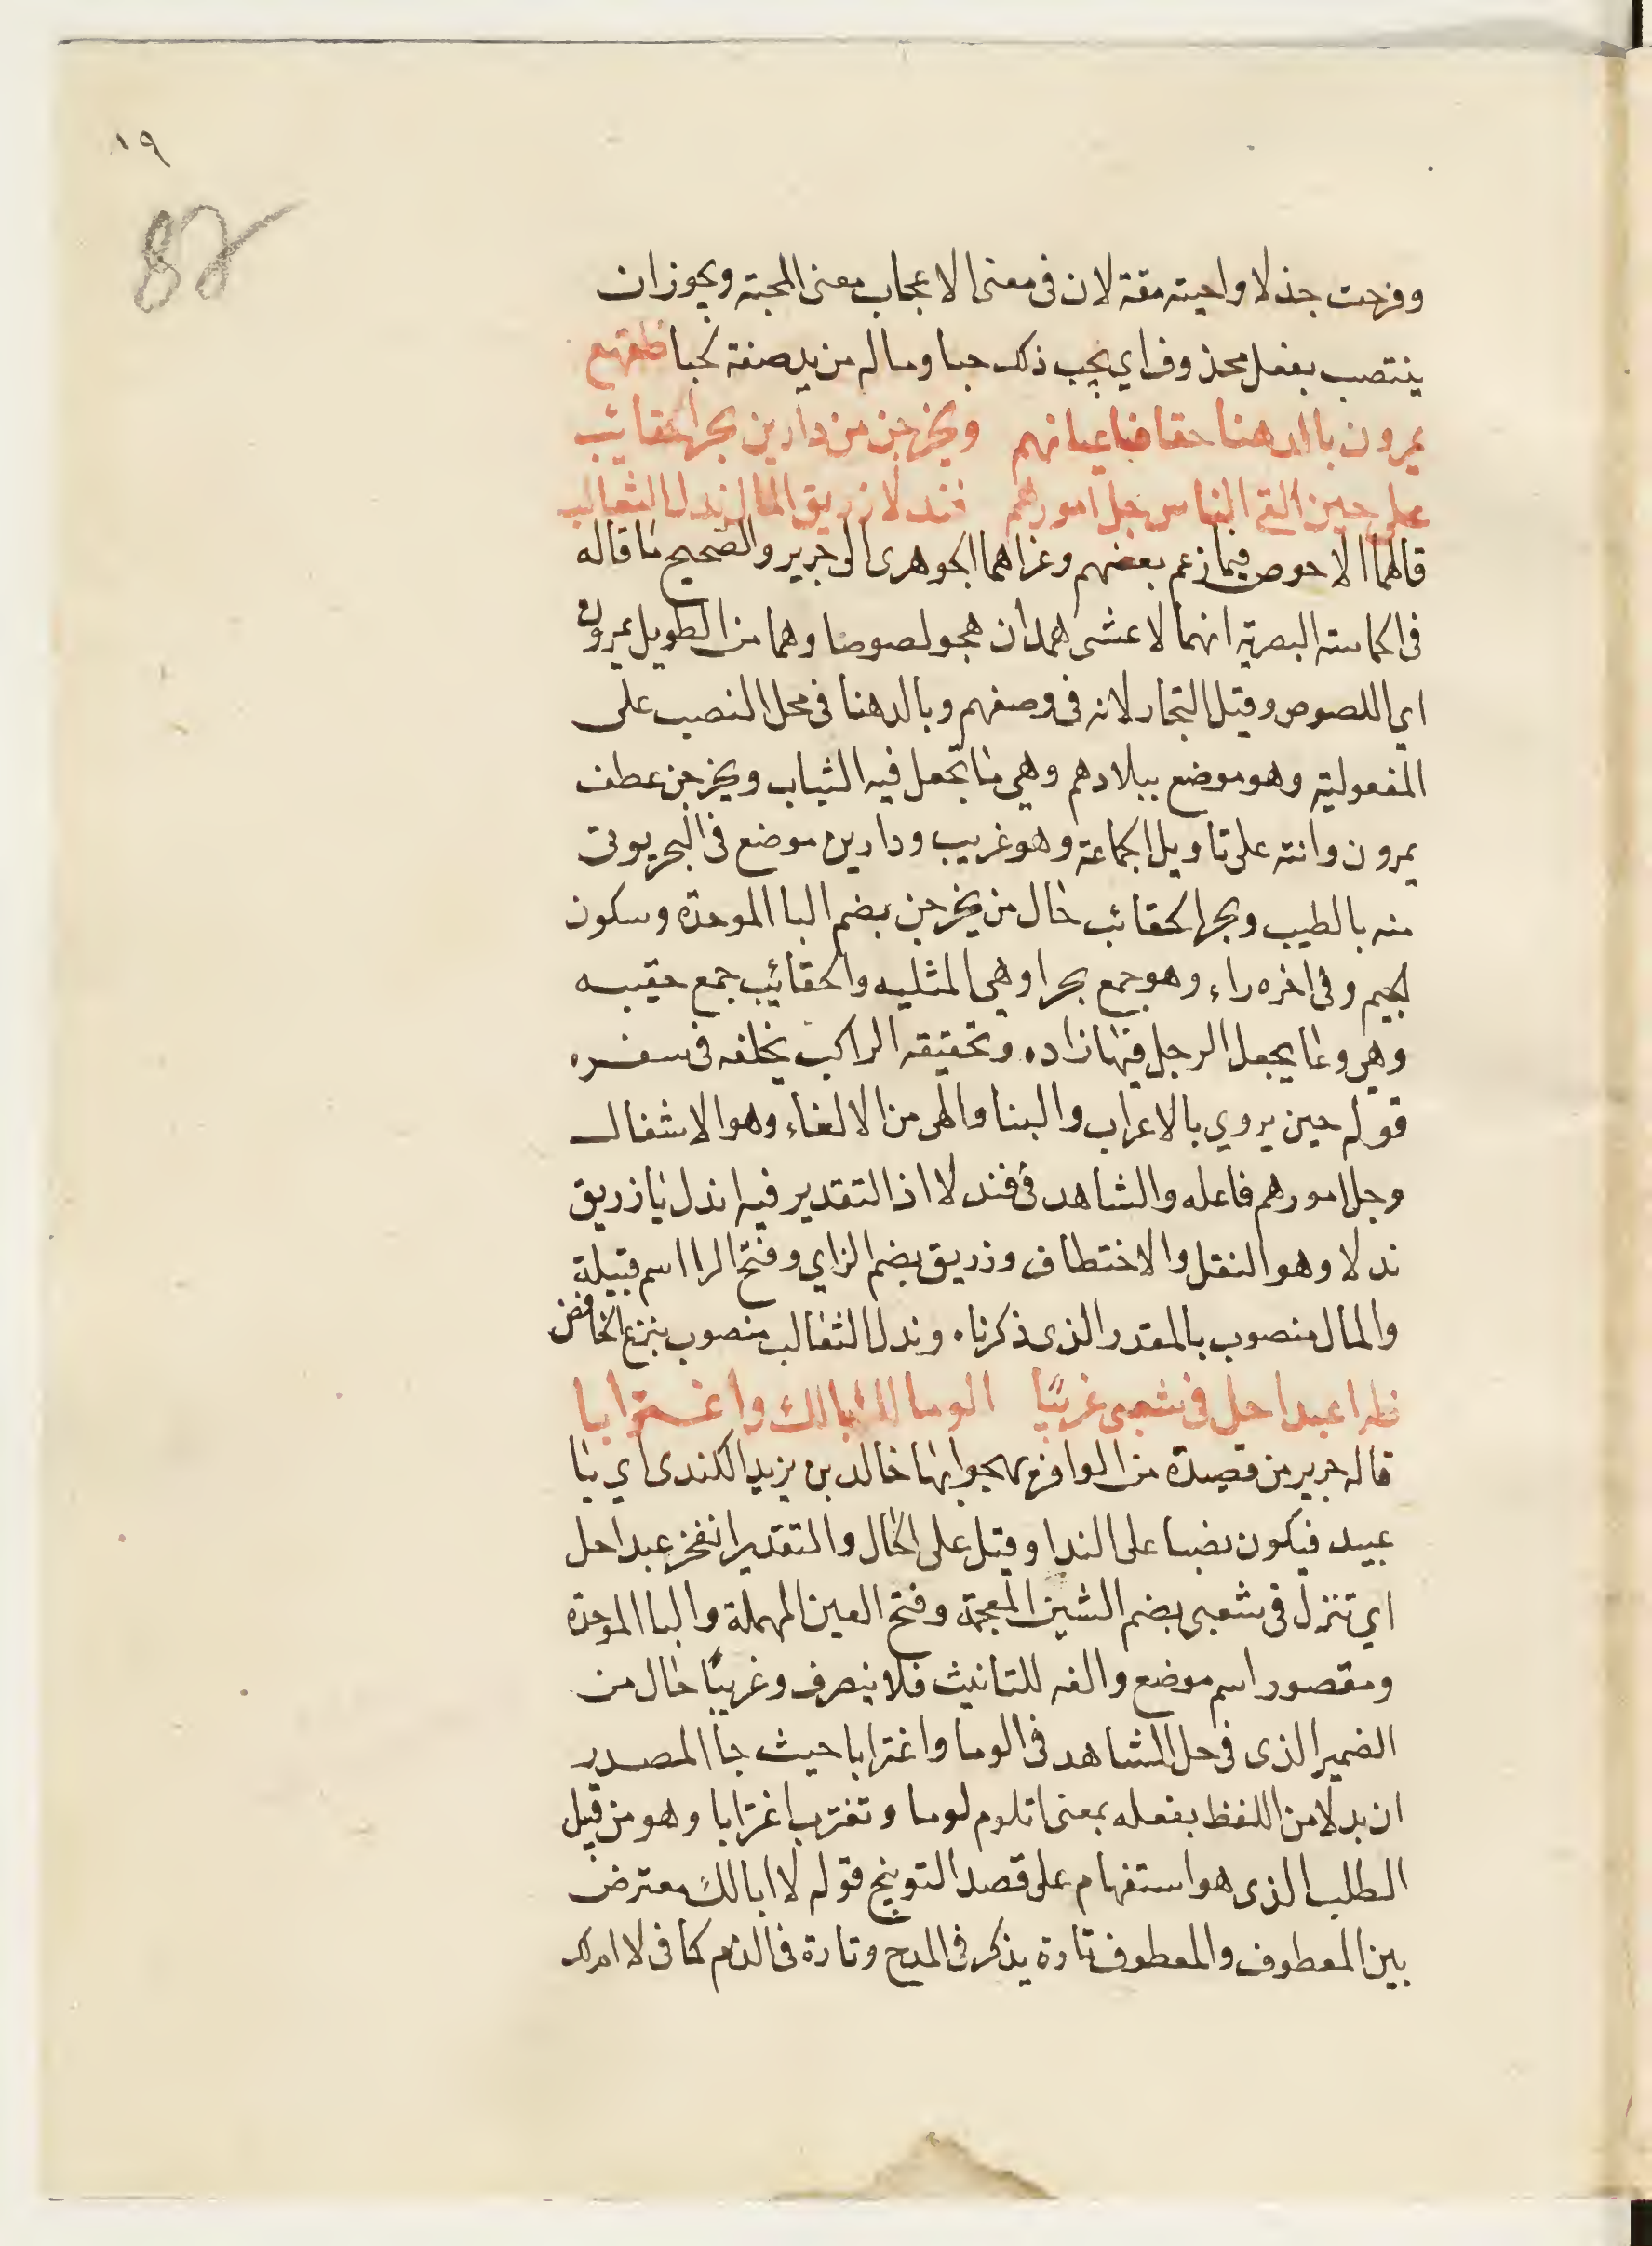 ١٩
82
وفرحت جذلا واحببته مقة لان فى معنى الاعجاب معنى المحبة ويجوز ان
ينتصب بفعل محذوف اي يحب ذلك حبا وما له من يد صفة لحبا ظقهع
يمرون بالدهنا خفافا عيابهم ويخرجن من دارين بجر الحقائب
على حين الهى الناس جل امورهم فندلا زريق المال ندل الثعالب
قالهما الاحوص فيما زعم بعضهم وعزاهما الجوهرى الى جرير والصحيح ما قاله
فى الحماسة البصرية انهما لاعشى همدان هجو لصوصا وهما من الطويل يمرون
اي اللصوص وقيل التجار لانه فى وصفهم وبالدهنا فى محل النصب على
المفعولية وهو موضع ببلادهم وهي ما تجعل فيه الثياب ويخرجن عطف
يمرون وانثه على تاويل الجماعة وهو غريب ودارين موضع فى البحر يوتى
منه بالطيب وبجر الحقائب حال من يخرجن بضم البا الموحدة وسكون
الجيم وفى اخره راء وهو جمع بجرا وهي المثليه والحقائب جمع حقيبه
وهي وعا يجعل الرجل فيها زاده وتحقيقه الراكب يخلفه فى سفره
قوله حين يروي بالاعراب والبنا والهى من الالهاء وهو الاشغال
وجل امورهم فاعله والشاهد فى فندلا اذ التقدير فيه اندل يا زريق
ندلا وهو النقل والاختطاف وزريق بضم الزاي وفتح الرا اسم قبيلة
والمال منصوب بالمقدر الذى ذكرناه وندل الثعالب منصوب بنزع الخافض
ظه اعبدا حل فى شعبى غريبًا الوما لا ابالك واغترابا
قاله جرير من قصيدة من الوافر يهجو بها خالد بن يزيد الكندى اي يا
عبيد فيكون نصبا على الندا وقيل على الحال والتقدير اتفخر عبدا حل
اي تنزل فى شعبى بضم الشين المعجمة وفتح العين المهملة والبا الموحدة
ومقصور اسم موضع والفه للتانيث فلا ينصرف وغريبًا حال من
الضمير الذى فى حل الشاهد فى الوما واغترابا حيث جا المصدر
ان بدلا من اللفظ بفعله بمعنى اتلوم لوما وتغترب اغترابا وهو من قبيل
الطلب الذى هو استفهام على قصد التوبيخ قوله لا ابالك معترض
بين المعطوف والمعطوف تارة يذكر فى المدح وتارة فى الذم كما فى لا ام لك